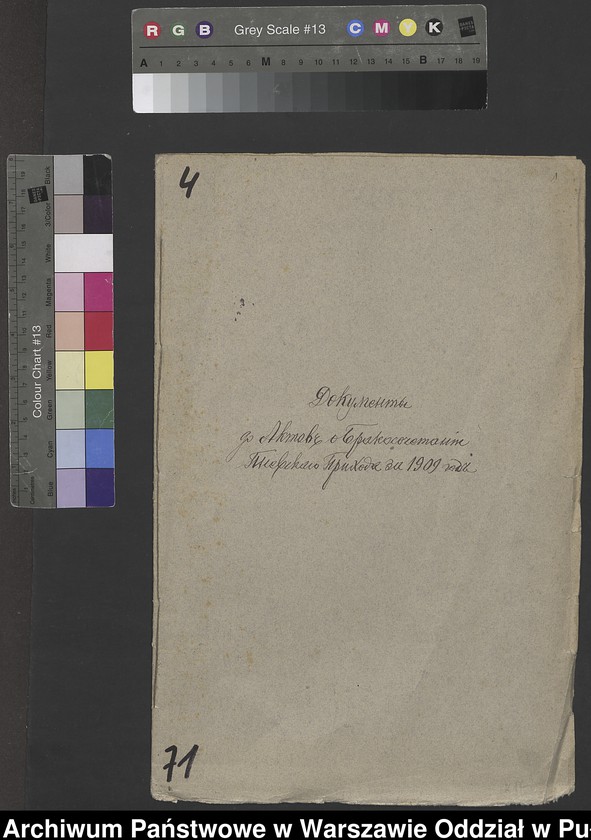 R G B Grey Scale #13 C M Y K
A 1 2 3 4 5 6 M 8 9 10 11 12 13 14 15 B 17 18 19
Colour Chart #13
Blue Cyan Green Yellow Red Magenta White 3/Color Black
4
Документы
до Актовъ о Бракосочетаніи
Прихода за 1909 годъ
71
Archiwum Państwowe w Warszawie Oddział w Pu